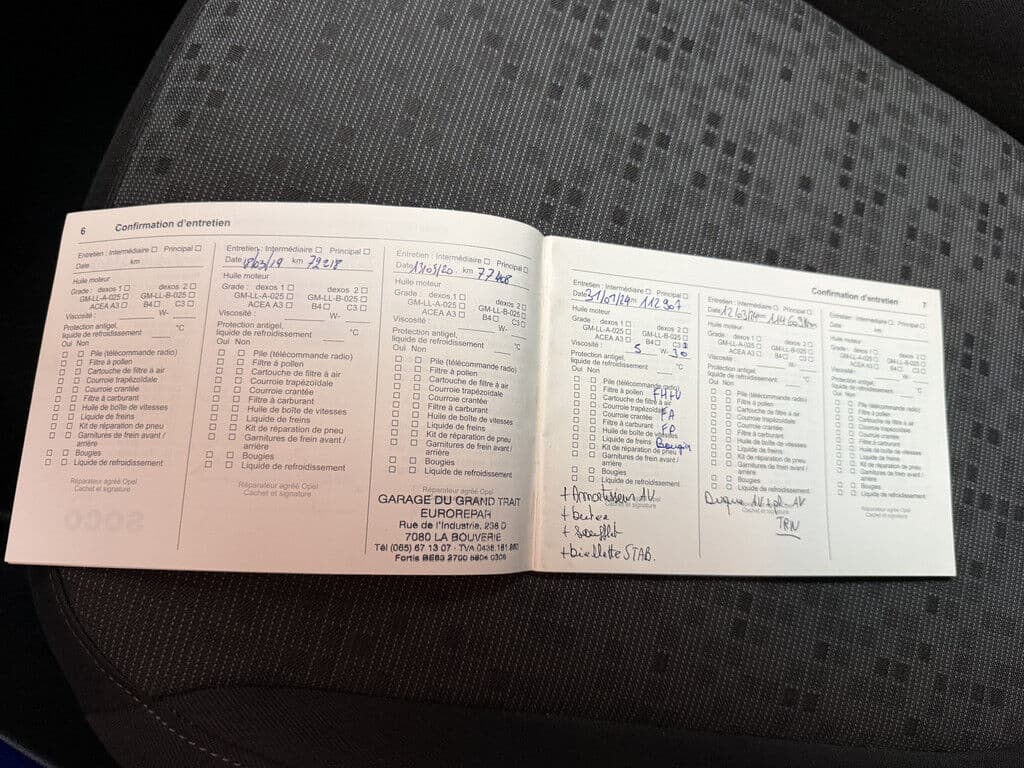 6 Confirmation d'entretien
Entretien : Intermédiaire ☐ Principal ☐
Date km
Huile moteur
Grade : dexos 1 ☐ dexos 2 ☐
GM-LL-A-025 ☐ GM-LL-B-025 ☐
ACEA A3 ☐ B4 ☐ C3 ☐
Viscosité : W-
Protection antigel,
liquide de refroidissement °C
Oui Non
☐ ☐ Pile (télécommande radio)
☐ ☐ Filtre à pollen
☐ ☐ Cartouche de filtre à air
☐ ☐ Courroie trapézoïdale
☐ ☐ Courroie crantée
☐ ☐ Filtre à carburant
☐ ☐ Huile de boîte de vitesses
☐ ☐ Liquide de freins
☐ ☐ Kit de réparation de pneu
☐ ☐ Garnitures de frein avant /
arrière
☐ ☐ Bougies
☐ ☐ Liquide de refroidissement
Réparateur agréé Opel
Cachet et signature
Entretien : Intermédiaire ☐ Principal ☐
Date 18/03/19 km
Huile moteur
Grade : dexos 1 ☐ dexos 2 ☐
GM-LL-A-025 ☐ GM-LL-B-025 ☐
ACEA A3 ☐ B4 ☐ C3 ☐
Viscosité : W-
Protection antigel,
liquide de refroidissement °C
Oui Non
☐ ☐ Pile (télécommande radio)
☐ ☐ Filtre à pollen
☐ ☐ Cartouche de filtre à air
☐ ☐ Courroie trapézoïdale
☐ ☐ Courroie crantée
☐ ☐ Filtre à carburant
☐ ☐ Huile de boîte de vitesses
☐ ☐ Liquide de freins
☐ ☐ Kit de réparation de pneu
☐ ☐ Garnitures de frein avant /
arrière
☐ ☐ Bougies
☐ ☐ Liquide de refroidissement
Réparateur agréé Opel
Cachet et signature
Entretien : Intermédiaire ☐ Principal ☐
Date km 77408
Huile moteur
Grade : dexos 1 ☐ dexos 2 ☐
GM-LL-A-025 ☐ GM-LL-B-025 ☐
ACEA A3 ☐ B4 ☐ C3 ☐
Viscosité : W-
Protection antigel,
liquide de refroidissement °C
Oui Non
☐ ☐ Pile (télécommande radio)
☐ ☐ Filtre à pollen
☐ ☐ Cartouche de filtre à air
☐ ☐ Courroie trapézoïdale
☐ ☐ Courroie crantée
☐ ☐ Filtre à carburant
☐ ☐ Huile de boîte de vitesses
☐ ☐ Liquide de freins
☐ ☐ Kit de réparation de pneu
☐ ☐ Garnitures de frein avant /
arrière
☐ ☐ Bougies
☐ ☐ Liquide de refroidissement
Réparateur agréé Opel
GARAGE DU GRAND TRAIT
EUROREPAR
Rue de l'Industrie, 236 D
7080 LA BOUVERIE
Tél (065) 67 13 07 - TVA
Fortis
Confirmation d'entretien 7
Entretien : Intermédiaire ☐ Principal ☐
Date 31/01/24 km 112907
Huile moteur
Grade : dexos 1 ☐ dexos 2 ☐
GM-LL-A-025 ☐ GM-LL-B-025 ☐
ACEA A3 ☐ B4 ☐ C3
Viscosité : 5 W- 30
Protection antigel,
liquide de refroidissement °C
Oui Non
☐ ☐ Pile (télécommande radio)
☐ ☐ Filtre à pollen
☐ ☐ Cartouche de filtre à air
☐ ☐ Courroie trapézoïdale FA
☐ ☐ Courroie crantée
☐ ☐ Filtre à carburant FP
☐ ☐ Huile de boîte de vitesses
☐ ☐ Liquide de freins Bougie
☐ ☐ Kit de réparation de pneu
☐ ☐ Garnitures de frein avant /
arrière
☐ ☐ Bougies
☐ ☐ Liquide de refroidissement
+ Amortisseur AV
+ butée
+ soufflet
+ biellette STAB.
Entretien : Intermédiaire ☐ Principal ☐
Date 12/03/24 km
Huile moteur
Grade : dexos 1 ☐ dexos 2 ☐
GM-LL-A-025 ☐ GM-LL-B-025 ☐
ACEA A3 ☐ B4 ☐ C3 ☐
Viscosité : W-
Protection antigel,
liquide de refroidissement °C
Oui Non
☐ ☐ Pile (télécommande radio)
☐ ☐ Filtre à pollen
☐ ☐ Cartouche de filtre à air
☐ ☐ Courroie trapézoïdale
☐ ☐ Courroie crantée
☐ ☐ Filtre à carburant
☐ ☐ Huile de boîte de vitesses
☐ ☐ Liquide de freins
☐ ☐ Kit de réparation de pneu
☐ ☐ Garnitures de frein avant /
arrière
☐ ☐ Bougies
☐ ☐ Liquide de refroidissement
Disque AV + plaq AV
TRW
Entretien : Intermédiaire ☐ Principal ☐
Date km
Huile moteur
Grade : dexos 1 ☐ dexos 2 ☐
GM-LL-A-025 ☐ GM-LL-B-025 ☐
ACEA A3 ☐ B4 ☐ C3 ☐
Viscosité : W-
Protection antigel,
liquide de refroidissement °C
Oui Non
☐ ☐ Pile (télécommande radio)
☐ ☐ Filtre à pollen
☐ ☐ Cartouche de filtre à air
☐ ☐ Courroie trapézoïdale
☐ ☐ Courroie crantée
☐ ☐ Filtre à carburant
☐ ☐ Huile de boîte de vitesses
☐ ☐ Liquide de freins
☐ ☐ Kit de réparation de pneu
☐ ☐ Garnitures de frein avant /
arrière
☐ ☐ Bougies
☐ ☐ Liquide de refroidissement
Réparateur agréé Opel
Cachet et signature